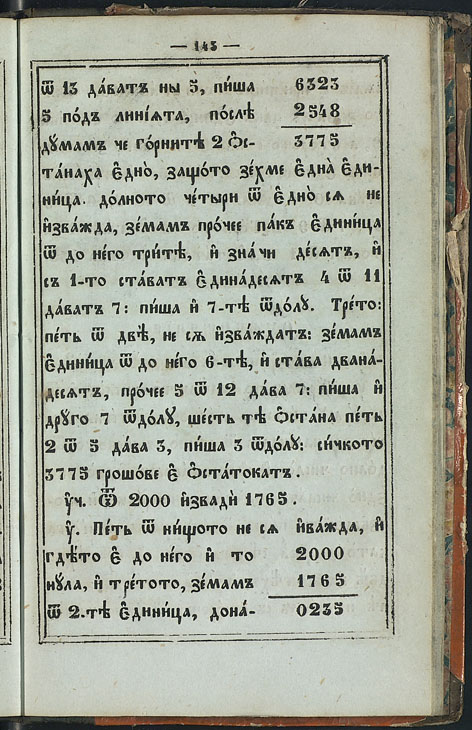 — 143 —
ѿ 13 да́ватъ ны 5, пи́ша 6323
5 по́дъ линїѧта, по́слѣ 2548
дꙋмамъ че го́рнитѣ 2 ѻ҆с- 3775
та́наха є҆дно̀, защо́то зе́хме є҆дна̀ є҆ди-
ни́ца. до́лното че́тыри ѿ є҆дно̀ сѧ не
и҆зва́жда, зе́мамъ про́чее па́къ є҆дини́ца
ѿ до не́го три́тѣ, и҆ зна́чи де́сѧтъ, и҆
съ 1-то ста́ватъ є҆дина́десѧтъ 4 ѿ 11
да́ватъ 7: пи́ша и҆ 7-тѣ ѿдо́лꙋ. Тре́то:
пе́ть ѿ двѣ, не сѧ и҆зва́ждатъ: зе́мамъ
є҆дини́ца ѿ до не́го 6-тѣ, и҆ ста́ва двана́-
десѧтъ, про́чее 5 ѿ 12 да́ва 7: пи́ша и҆
дрꙋго 7 ѿдо́лꙋ, ше́сть тѣ ѻ҆ста́на пе́ть
2 ѿ 5 да́ва 3, пи́ша 3 ѿдо́лꙋ: си́чкото
3775 грошо́ве є҆ ѻ҆ста́токатъ.
ᲂу҆ч. Ѿ 2000 и҆звадѝ 1765.
ᲂу҆. Пе́ть ѿ ни́щото не сѧ и҆ва́жда, и҆
гдѣ́то є҆ до не́го и҆ то 2000
нꙋла, и҆ тре́тото, зе́мамъ 1765
ѿ 2-тѣ є҆дини́ца, дона́- 0235